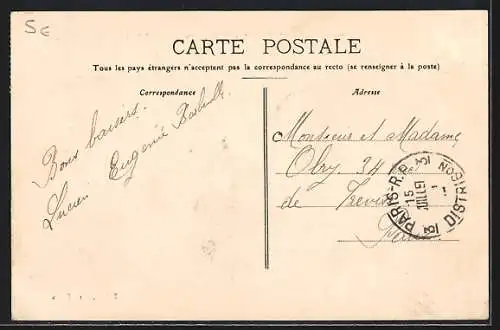 5€
CARTE POSTALE
Tous les pays étrangers n'acceptent pas la correspondance au recto (se renseigner à la poste)
Correspondance
Adresse
Bons baisers.
Eugénie
Lucien
Monsieur et Madame
Obry, 34 rue
de Trévise
Paris
PARIS-R.P. DISTRIBUTION
15
JUILLET